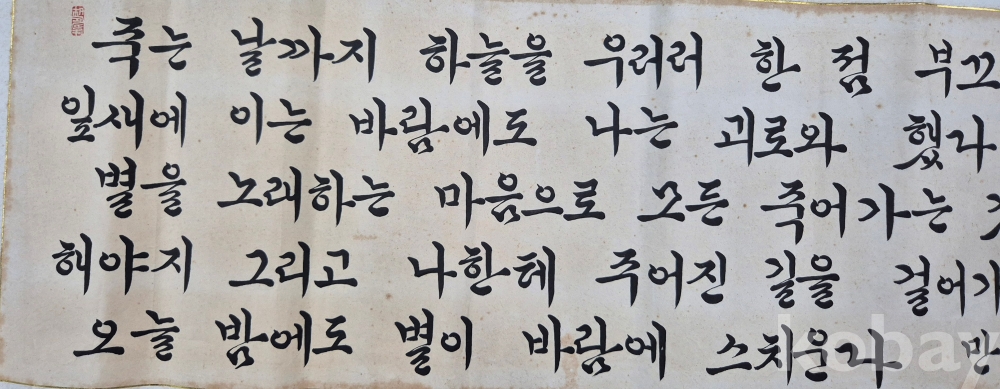 죽는 날까지 하늘을 우러러 한 점 부끄
잎새에 이는 바람에도 나는 괴로와 했다
별을 노래하는 마음으로 모든 죽어가는
해야지 그리고 나한테 주어진 길을 걸어가
오늘 밤에도 별이 바람에 스치운다
kobay